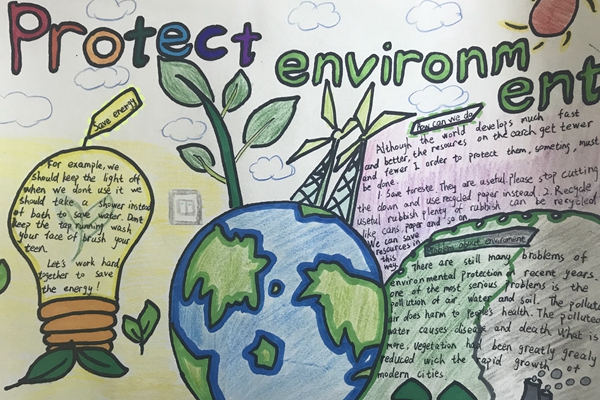 Protect
environm
ent
Save energy
For example, we
should keep the light off
when we dont use it we
should take a shower instead
of bath to save water. Dont
keep the tap running wash
your face of brush your
teen.
Let's work hard
together to save
the energy!
how can we do
Although the world develops much fast
and better, the resoures on the earch get tewer
and fewer I order to protect them, someting, must
be done.
1 Save foreste. They are useful please stop cutting
the down and use recycled paper instead. 2. Recycle
useful rubbish plenty of rubbish can be recycled
like cans, paper and so on
We can save
resources in
this
way.
about enviroment
There are still many problems of
environmental protection recent years.
one of the most serious problems is the
pollution of air, water and soil. The polluted
air does harm to people's health. The polluted
water causes disease and death What is
more, vegetation has been greatly grealy
reduced wich the rapid growth of
modern cities.